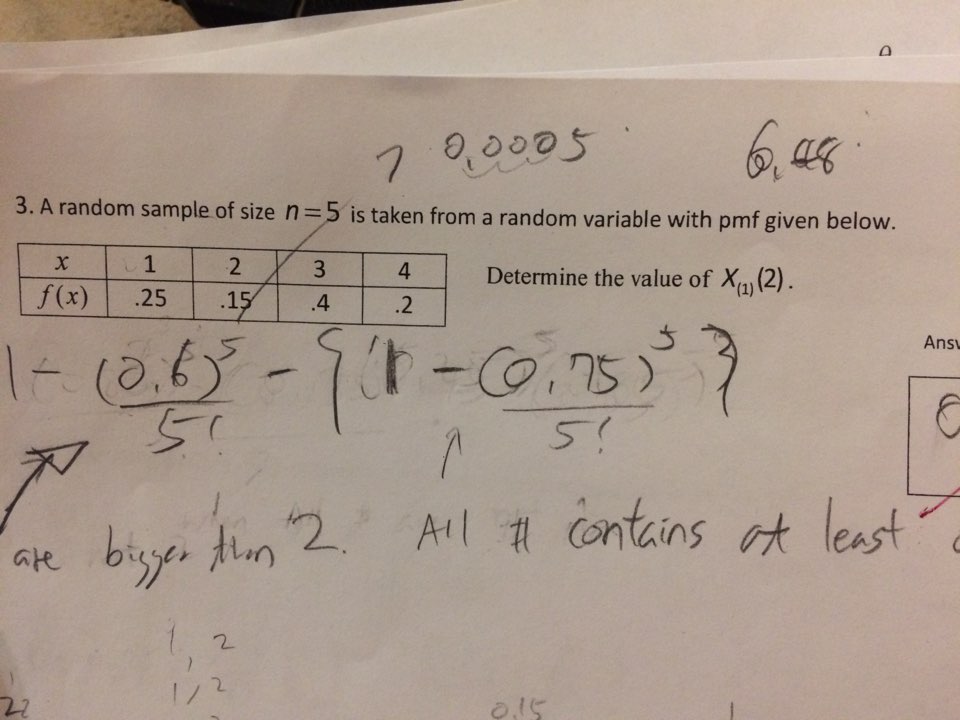 0,0005
3. A random sample of size n=5 is taken from a random variable with pmf given below.
x 1 2 3 4
f(x) .25 .15 .4 .2
Determine the value of X(1)(2).
1 - (0.6)^5 / 5! - { 1 - (0.75)^5 / 5! }
are bigger than 2. All # contains at least
1, 2
1, 2
22
0.15